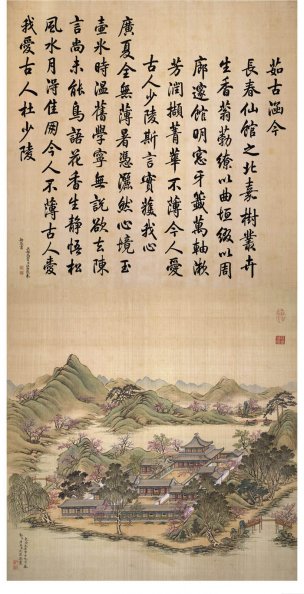 茹古涵今
長春仙館之北嘉樹叢卉
生香蓊葧繚以曲垣綴以周
廊邃館明窓牙籤萬軸漱
芳潤擷菁華不薄今人愛
古人少陵斯言實獲我心
廣廈全無薄暑憑灑然心境玉
壺氷時溫舊學寧無說欲去陳
言尚未能鳥語花香生靜悟松
風水月得佳朋今人不薄古人愛
我愛古人杜少陵